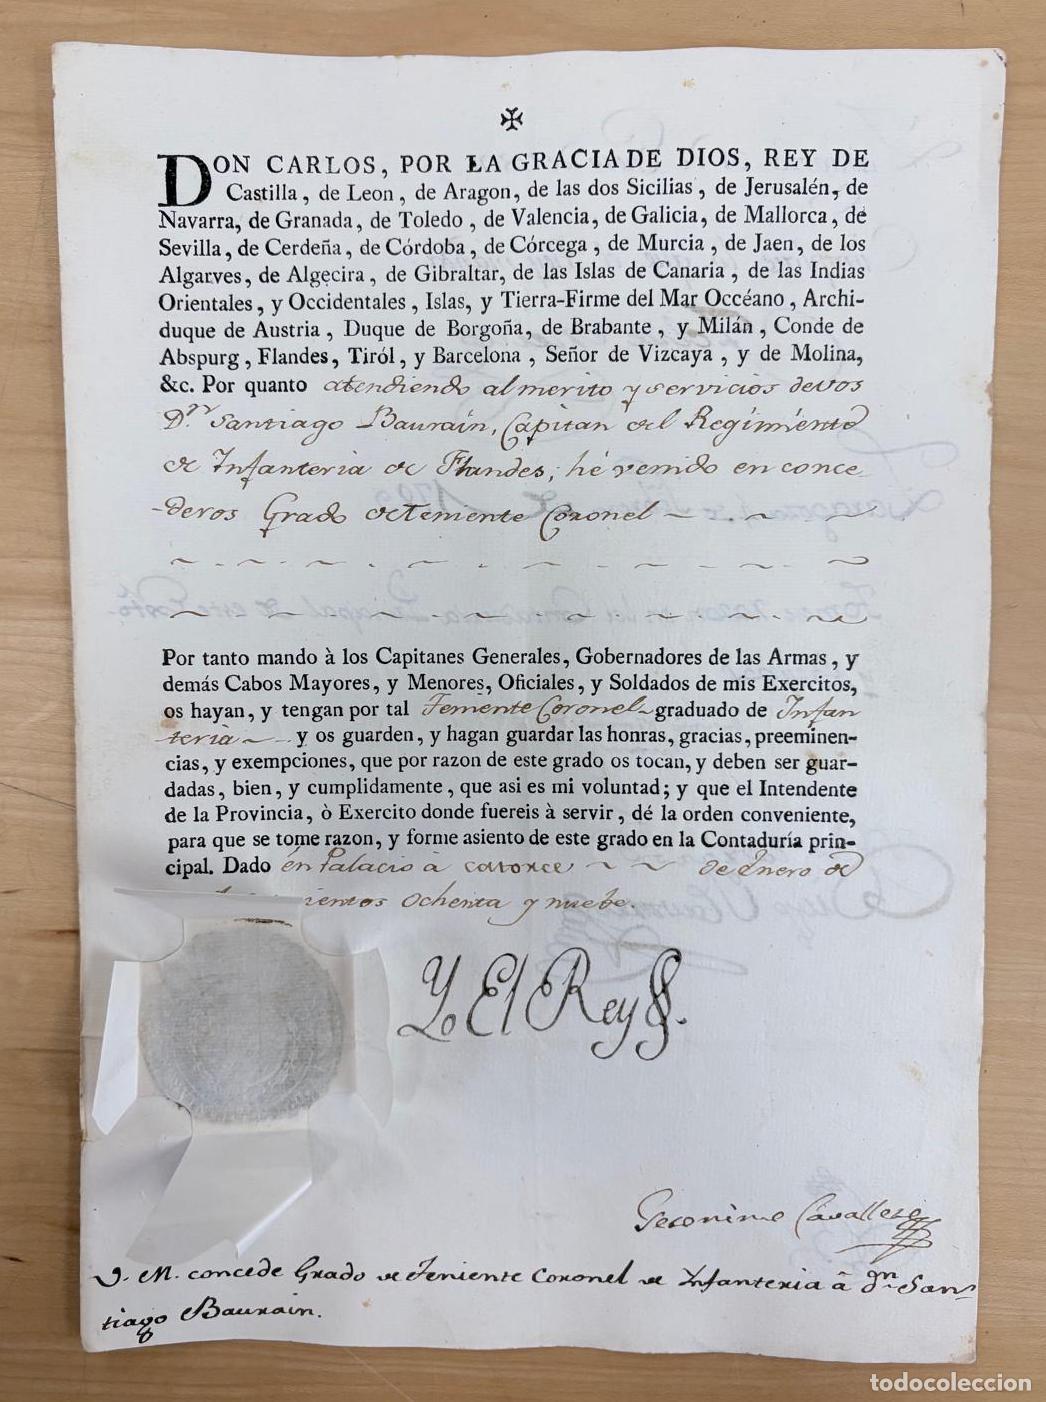 DON CARLOS, POR LA GRACIA DE DIOS, REY DE
Castilla, de Leon, de Aragon, de las dos Sicilias, de Jerusalén, de
Navarra, de Granada, de Toledo, de Valencia, de Galicia, de Mallorca, de
Sevilla, de Cerdeña, de Córdoba, de Córcega, de Murcia, de Jaen, de los
Algarves, de Algecira, de Gibraltar, de las Islas de Canaria, de las Indias
Orientales, y Occidentales, Islas, y Tierra-Firme del Mar Occéano, Archi-
duque de Austria, Duque de Borgoña, de Brabante, y Milán, Conde de
Abspurg, Flandes, Tiról, y Barcelona, Señor de Vizcaya, y de Molina,
&c. Por quanto atendiendo al merito y servicios de vos
Dn. Santiago Baurain, Capitan del Regimiento
de Infanteria de Flandes, hé venido en conce
-deros Grado de Teniente Coronel
Por tanto mando à los Capitanes Generales, Gobernadores de las Armas, y
demás Cabos Mayores, y Menores, Oficiales, y Soldados de mis Exercitos,
os hayan, y tengan por tal Teniente Coronel graduado de Infan
teria y os guarden, y hagan guardar las honras, gracias, preeminen-
cias, y exempciones, que por razon de este grado os tocan, y deben ser guar-
dadas, bien, y cumplidamente, que asi es mi voluntad; y que el Intendente
de la Provincia, ò Exercito donde fuereis à servir, dé la orden conveniente,
para que se tome razon, y forme asiento de este grado en la Contaduría prin-
cipal. Dado en Palacio à catorce de Enero de
ientos ochenta y nuebe.
Yo El Rey
Geronimo Cavallero
S. M. concede Grado de Teniente Coronel de Infanteria â Dn. San-
tiago Baurain.
todocoleccion